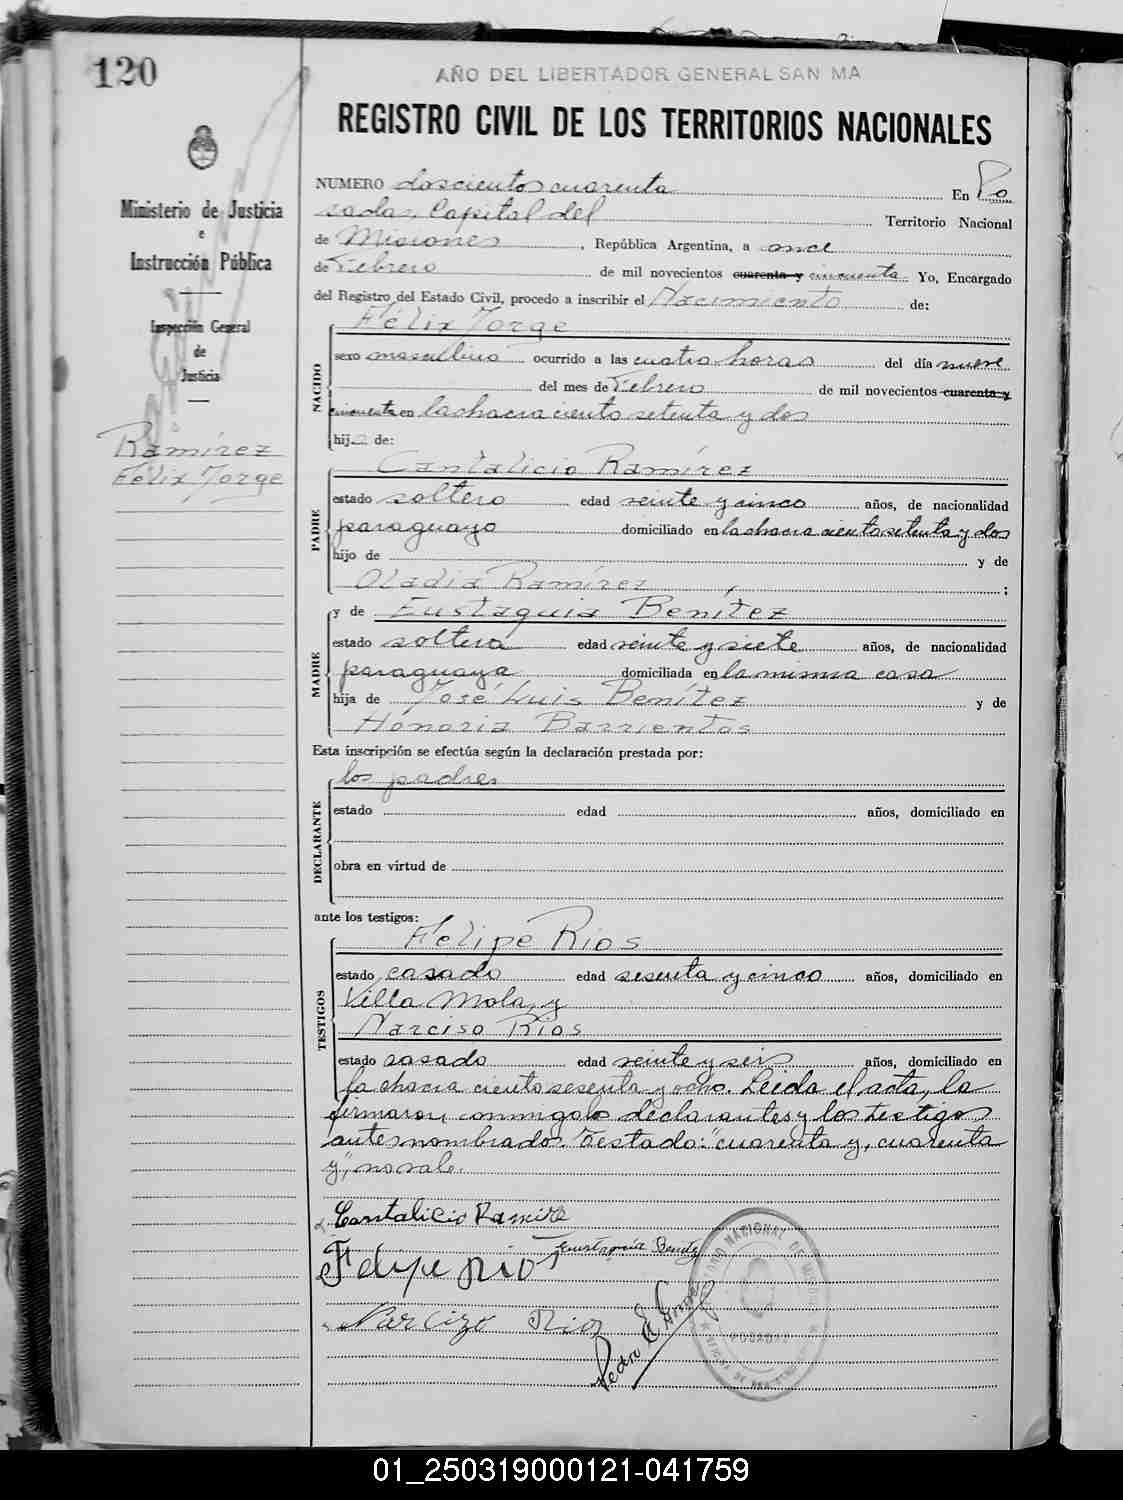 120
AÑO DEL LIBERTADOR GENERAL SAN MA
REGISTRO CIVIL DE LOS TERRITORIOS NACIONALES
Ministerio de Justicia
e
Instrucción Pública
Inspección General
de
Justicia
Ramírez
Félix Jorge
NUMERO doscientos cuarenta En Po
sadas, Capital del Territorio Nacional
de Misiones, República Argentina, a once
de Febrero de mil novecientos cuarenta y cincuenta Yo, Encargado
del Registro del Estado Civil, procedo a inscribir el Nacimiento de:
NACIDO
Félix Jorge
sexo masculino ocurrido a las cuatro horas del día nueve
del mes de Febrero de mil novecientos cuarenta y
cincuenta en la chacra ciento setenta y dos
hijo de:
PADRE
Cantalicio Ramírez
estado soltero edad veinte y cinco años, de nacionalidad
paraguayo domiciliado en la chacra ciento setenta y dos
hijo de y de
Oladia Ramírez, ;
MADRE
y de Eustaquia Benítez
estado soltera edad veinte y siete años, de nacionalidad
paraguaya domiciliada en la misma casa
hija de José Luis Benítez y de
Honoria Barrientos
Esta inscripción se efectúa según la declaración prestada por:
DECLARANTE
los padres
estado edad años, domiciliado en
obra en virtud de
ante los testigos:
TESTIGOS
Felipe Rios
estado casado edad sesenta y cinco años, domiciliado en
Villa Mola, y
Narciso Rios
estado casado edad veinte y seis años, domiciliado en
la chacra ciento sesenta y ocho. Leida el acta, la
firmaron conmigo los declarantes y los testigos
antes nombrados. Testado: "cuarenta y, cuarenta
y", no vale.
Cantalicio Ramire
Eustaquia Benitez
Felipe rios
Narcizo Rios
Pedro E
NACIONAL DE MISIONES
POSADAS
01_250319000121-041759